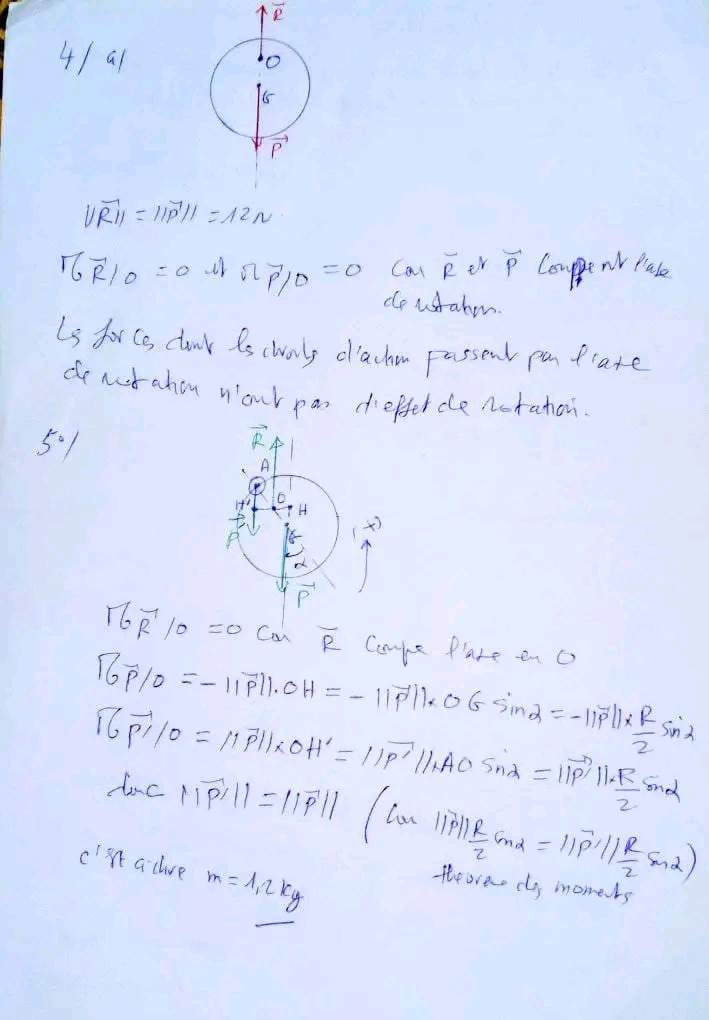 4/ a/
R⃗
O
G
P⃗
||R⃗|| = ||P⃗|| = 12N
𝓜R⃗/O = 0 et 𝓜P⃗/O = 0 car R⃗ et P⃗ coupent l'axe
de rotation.
Les forces dont les droites d'action passent par l'axe
de rotation n'ont pas d'effet de rotation.
5°/
R⃗
A
H' O H
P⃗' G (+)
α
P⃗
𝓜R⃗/O = 0 car R⃗ coupe l'axe en O
𝓜P⃗/O = - ||P⃗||.OH = - ||P⃗||x OG sinα = - ||P⃗||x R/2 sinα
𝓜P⃗'/O = ||P⃗||x OH' = ||P⃗'||x AO sinα = ||P⃗'||x R/2 sinα
donc ||P⃗'|| = ||P⃗|| (car ||P⃗|| R/2 sinα = ||P⃗'|| R/2 sinα)
théorème des moments
c'est à dire m = 1,2 kg